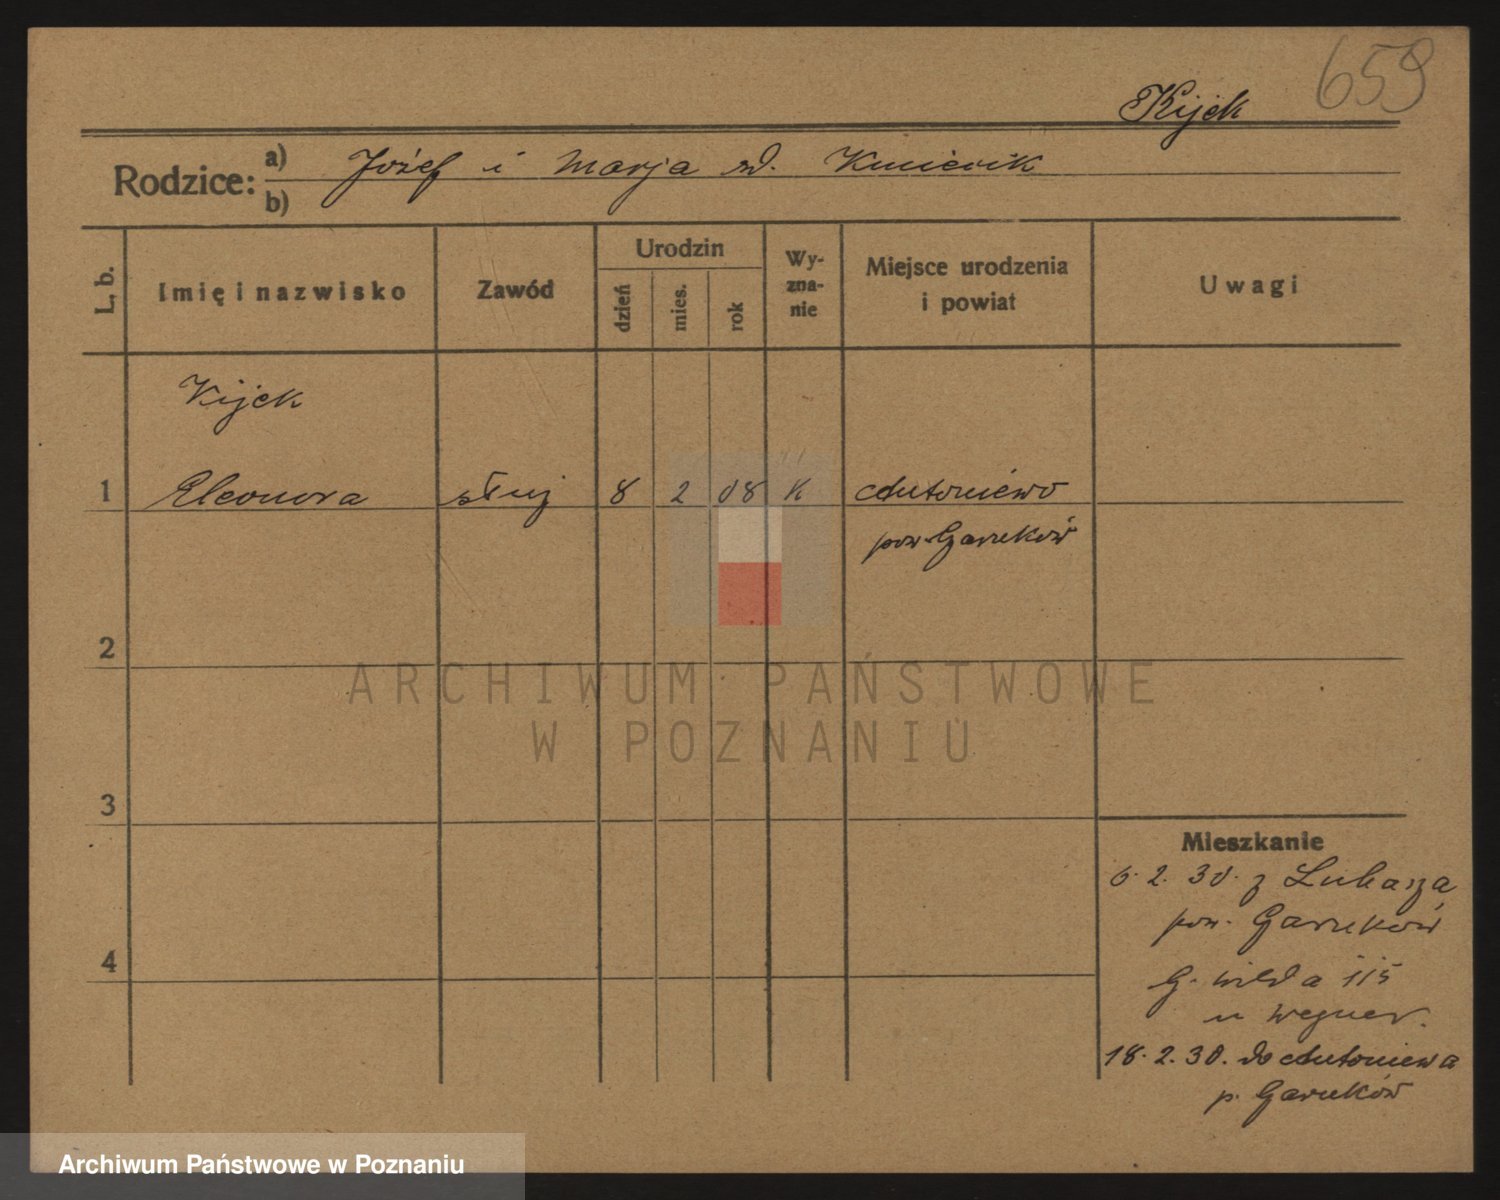 659
Kijek
Rodzice: a) Józef i Marja zd. Kmiecik
b)
L. b.
Imię i nazwisko
Zawód
Urodzin
dzień
mies.
rok
Wy-
zna-
nie
Miejsce urodzenia
i powiat
Uwagi
Kijek
1 Eleonora służ 8 2 08 K Antoniewo
pow. Garwków
2
3
4
Mieszkanie
6. 2. 30. z Lukasza
pow. Garwków
G. Wilda 115
u Wegner.
18. 2. 30. do Antoniewa
p. Garwków
ARCHIWUM PAŃSTWOWE
W POZNANIU
Archiwum Państwowe w Poznaniu